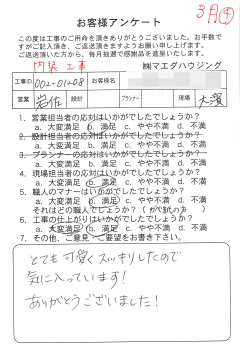 3月④
お客様アンケート
この度は工事のご用命を頂きありがとうございました。お手数で
すがご記入頂き、ご返送頂きますようお願い申し上げます。
ご返送頂いた方から、毎月抽選で感謝品を進呈いたします。
内装工事 ㈱マエダハウジング
工事ID 002-01208 お客様名
営業 岩佐 設計 プランナー 現場 大濱
1. 営業担当者の応対はいかがでしたでしょうか?
a. 大変満足 b. 満足 c. やや不満 d. 不満
2. 設計担当者の応対はいかがでしたでしょうか?
a. 大変満足 b. 満足 c. やや不満 d. 不満
3. プランナーの応対はいかがでしたでしょうか?
a. 大変満足 b. 満足 c. やや不満 d. 不満
4. 現場担当者の応対はいかがでしたでしょうか?
a. 大変満足 b. 満足 c. やや不満 d. 不満
5. 職人のマナーはいかがでしたでしょうか?
a. 大変満足 b. 満足 c. やや不満 d. 不満
それはどの職人でしょうか?
6. 工事の仕上がりはいかがでしたでしょうか?
a. 大変満足 b. 満足 c. やや不満 d. 不満
7. その他、ご意見・ご要望をお書き下さい。
とても可愛くスッキリしたので
気に入っています!
ありがとうございました!